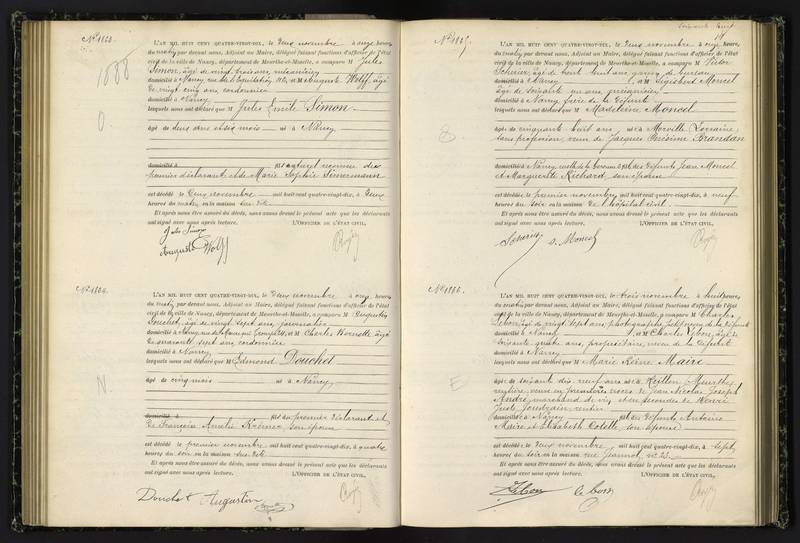 L'AN MIL HUIT CENT QUATRE-VINGT-DIX, le Deux novembre à onze heures
du matin par devant nous, Adjoint au Maire, délégué faisant fonctions d'officier de l'état
civil de la ville de Nancy, département de Meurthe-et-Moselle, a comparu M Jules
Simon, âgé de vingt trois ans, mécanicien
domicilié à Nancy, et M Auguste Wolff, âgé
de vingt cinq ans, cordonnier
domicilié à Nancy
lesquels nous ont déclaré que M Jules Emile Simon
âgé de deux ans et six mois né à Nancy
domicilié à fils naturel reconnu du
premier déclarant et de Marie Sophie Simermann
est décédé le Deux novembre mil huit cent quatre-vingt-dix, à deux
heures du matin en la maison
Et après nous être assuré du décès, nous avons dressé le présent acte que les déclarants
ont signé avec nous après lecture. L'OFFICIER DE L'ÉTAT CIVIL,
Jules Simon
Auguste Wolff
L'AN MIL HUIT CENT QUATRE-VINGT-DIX, le Deux novembre à onze heures
du matin par devant nous, Adjoint au Maire, délégué faisant fonctions d'officier de l'état
civil de la ville de Nancy, département de Meurthe-et-Moselle, a comparu M Augustin
Douchet, âgé de vingt sept ans, journalier
domicilié à Nancy, et M Charles Hornette âgé
de quarante sept ans, cordonnier
domicilié à Nancy
lesquels nous ont déclaré que M Edmond Douchet
âgé de cinq mois né à Nancy
domicilié à fils du premier déclarant et
de Françoise Amélie Krémer, son épouse
est décédé le premier novembre mil huit cent quatre-vingt-dix, à quatre
heures du soir en la maison
Et après nous être assuré du décès, nous avons dressé le présent acte que les déclarants
ont signé avec nous après lecture. L'OFFICIER DE L'ÉTAT CIVIL,
Douchet Augustin
L'AN MIL HUIT CENT QUATRE-VINGT-DIX, le Deux novembre à onze heures
du matin par devant nous, Adjoint au Maire, délégué faisant fonctions d'officier de l'état
civil de la ville de Nancy, département de Meurthe-et-Moselle, a comparu M Victor
âgé de trente huit ans, garçon de bureau
domicilié à Nancy et M Sigisbert Moncel
âgé de soixante un ans
domicilié à Nancy frère de la défunte
lesquels nous ont déclaré que M Madeleine Moncel
âgée de cinquante huit ans, née à Morville Lorraine
sans profession, veuve de Jacques Jérôme Brandan
domiciliée à Nancy fille des défunts Jean Moncel
et Marguerite Richard, son épouse
est décédée le premier novembre mil huit cent quatre-vingt-dix, à neuf
heures du soir en la maison de l'hôpital civil
Et après nous être assuré du décès, nous avons dressé le présent acte que les déclarants
ont signé avec nous après lecture. L'OFFICIER DE L'ÉTAT CIVIL,
S. Moncel
L'AN MIL HUIT CENT QUATRE-VINGT-DIX, le trois novembre à huit heures
du matin par devant nous, Adjoint au Maire, délégué faisant fonctions d'officier de l'état
civil de la ville de Nancy, département de Meurthe-et-Moselle, a comparu M Charles
âgé de vingt sept ans, photographe, petit neveu de la défunte
domicilié à Nancy et M Charles âgé de
soixante quatre ans, propriétaire, neveu de la défunte
domicilié à Nancy
lesquels nous ont déclaré que M Marie Reine Maire
âgée de soixante dix neuf ans née à Reillon, Meurthe,
rentière, veuve en premières noces de Jean Nicolas Joseph
André, marchand de vin, et en secondes de
domiciliée à Nancy fille des défunts Antoine
Maire et Elisabeth Colette, son épouse
est décédée le deux novembre mil huit cent quatre-vingt-dix, à sept
heures du soir en la maison rue Jeannot, no 23
Et après nous être assuré du décès, nous avons dressé le présent acte que les déclarants
ont signé avec nous après lecture. L'OFFICIER DE L'ÉTAT CIVIL,